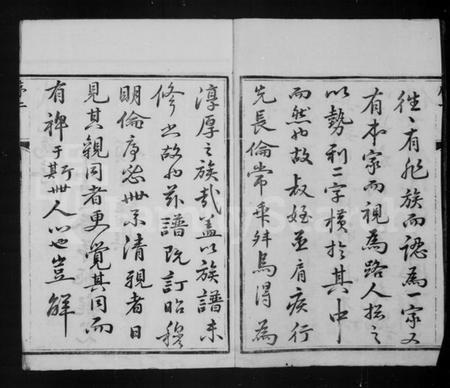 往往有非族而認為一家又
有本家而視為路人揔之
以勢利二字橫於其中
而然也故叔姪並肩疾行
先長倫常乖舛烏得為
淳厚之族哉蓋以族譜未
修之故也茲譜既訂昭穆
明倫序悉世系清親者日
見其親同者更覺其同而
有裨于斯世人心也豈鮮